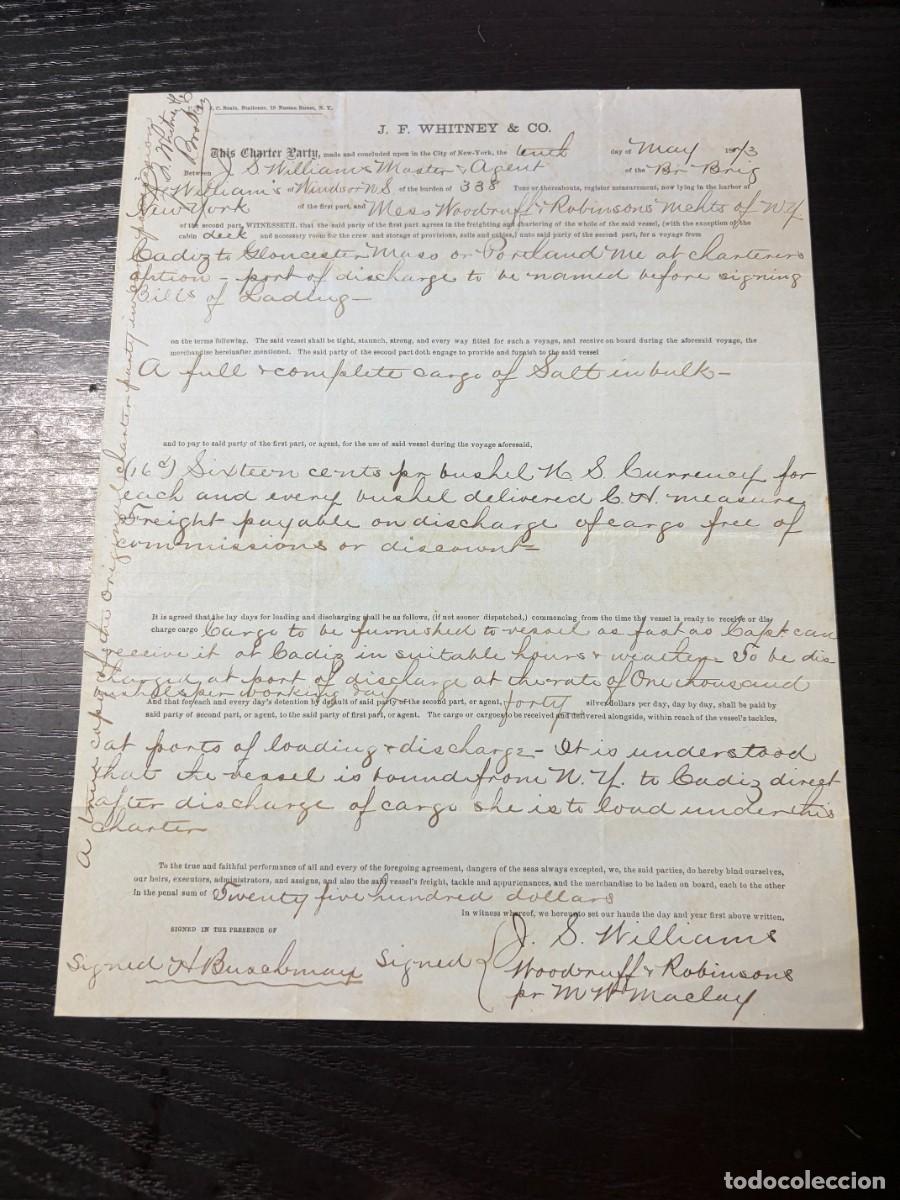 J. C. Beale, Stationer, 19 Nassau Street, N. Y.
J. F. WHITNEY & CO.
This Charter Party, made and concluded upon in the City of New-York, the tenth day of May 1873
Between J S Williams Master & Agent of the Br Brig
Williams of Windsor N S of the burden of 338 Tons or thereabouts, register measurement, now lying in the harbor of
New York of the first part, and Mess Woodruff & Robinsons Mchts of N Y
of the second part, WITNESSETH, that the said party of the first part agrees in the freighting and chartering of the whole of the said vessel, (with the exception of the
cabin deck and necessary room for the crew and storage of provisions, sails and cables,) unto said party of the second part, for a voyage from
Cadiz to Gloucester Mass or Portland Me at charterers
option - port of discharge to be named before signing
Bills of Lading -
on the terms following. The said vessel shall be tight, staunch, strong, and every way fitted for such a voyage, and receive on board during the aforesaid voyage, the
merchandise hereinafter mentioned. The said party of the second part doth engage to provide and furnish to the said vessel
A full & complete cargo of Salt in bulk -
and to pay to said party of the first part, or agent, for the use of said vessel during the voyage aforesaid,
(16c) Sixteen cents pr bushel U. S. Currency for
each and every bushel delivered C. H. measure
Freight payable on discharge of cargo free of
commissions or discount -
It is agreed that the lay days for loading and discharging shall be as follows, (if not sooner dispatched,) commencing from the time the vessel is ready to receive or dis-
charge cargo Cargo to be furnished to vessel as fast as Capt can
receive it at Cadiz in suitable hours & weather. To be dis
charged at port of discharge at the rate of One thousand
bushels per working day
And that for each and every day's detention by default of said party of the second part, or agent, forty silver dollars per day, day by day, shall be paid by
said party of second part, or agent, to the said party of first part, or agent. The cargo or cargoes to be received and delivered alongside, within reach of the vessel's tackles,
at ports of loading & discharge - It is understood
that the vessel is bound from N. Y. to Cadiz direct
after discharge of cargo she is to load under this
charter
To the true and faithful performance of all and every of the foregoing agreement, dangers of the seas always excepted, we, the said parties, do hereby bind ourselves,
our heirs, executors, administrators, and assigns, and also the said vessel's freight, tackle and appurtenances, and the merchandise to be laden on board, each to the other
in the penal sum of Twenty five hundred dollars
In witness whereof, we hereunto set our hands the day and year first above written,
SIGNED IN THE PRESENCE OF
Signed H Buschman Signed J. S. Williams
Woodruff & Robinsons
pr M W Maclay
A true copy of the original charter party in our possession
J. F. Whitney & Co
Brokers
todocoleccion